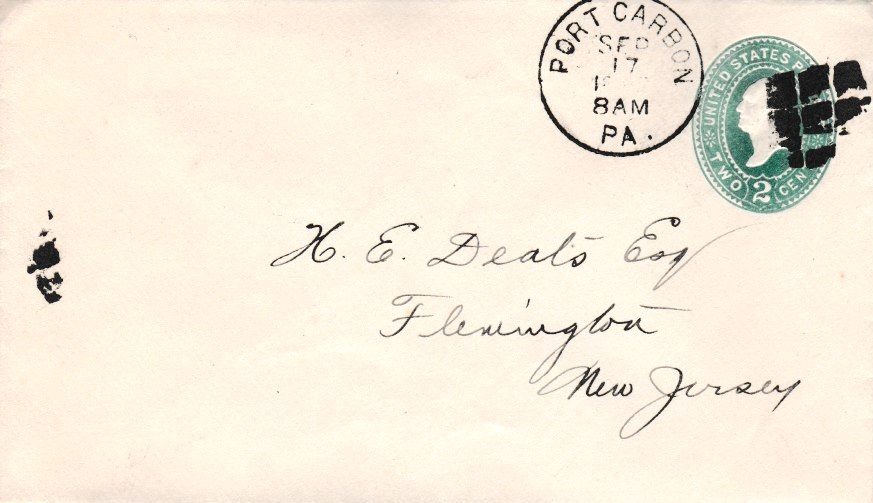 PORT CARBON
SEP
17
8AM
PA.
UNITED STATES
TWO 2 CEN
H. E. Deats Esq
Flemington
New Jersey